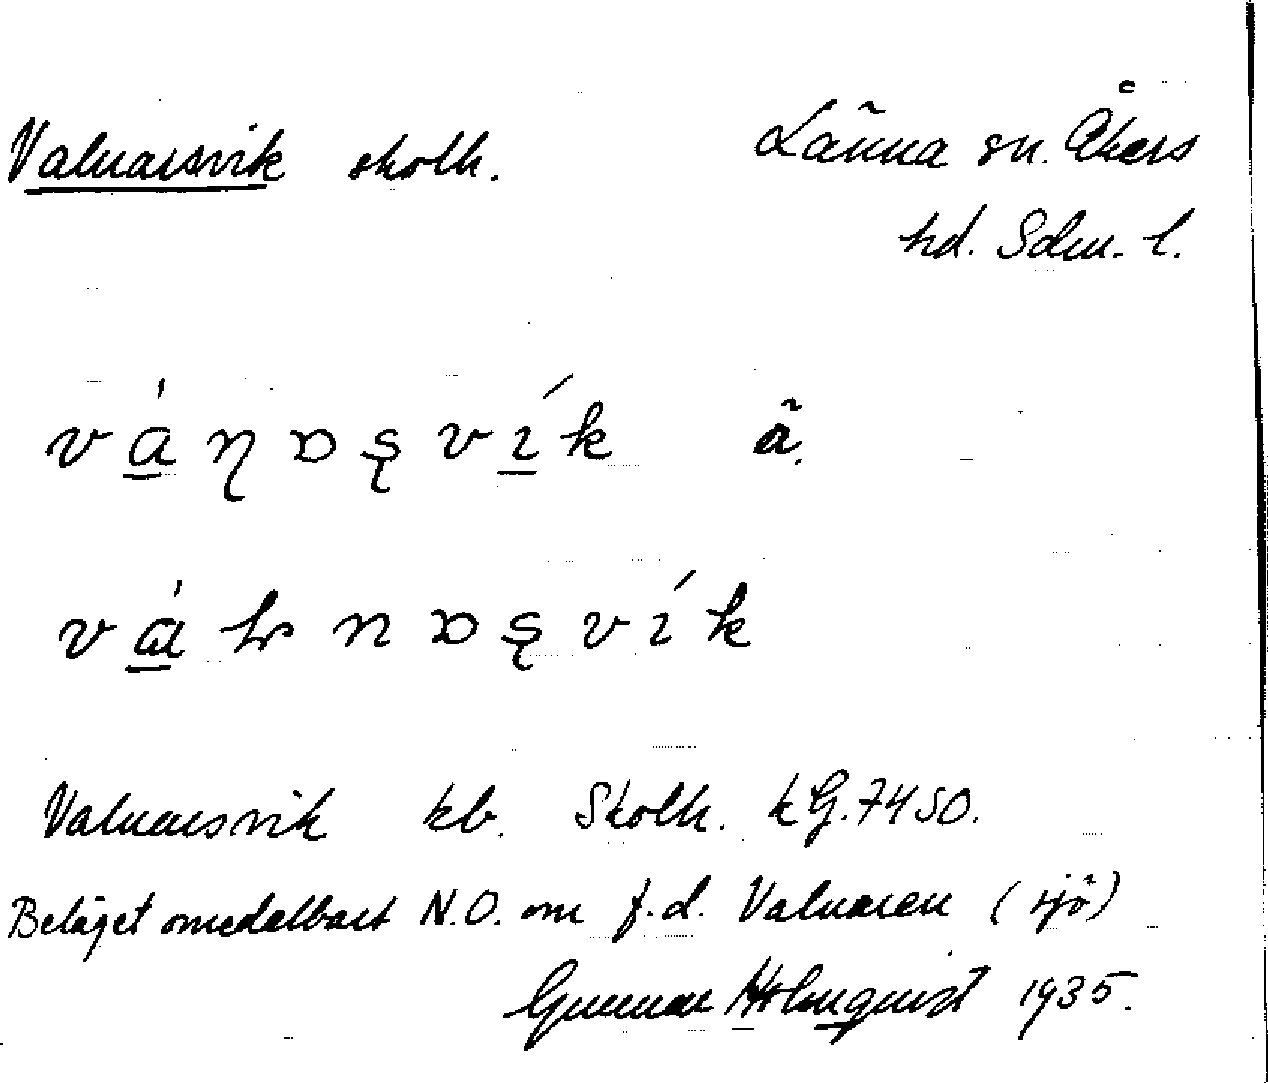 Valnarsvik skolh. Länna sn. Åkers
hd. Sdm. l.
vánɒsvík ä.
nɒsvík
Valnarsvik kb. Skolh. kG. 7450.
Beläget omedelbart N.O. om f.d. Valnaren (sjö)
Gunnar Holmquist 1935.